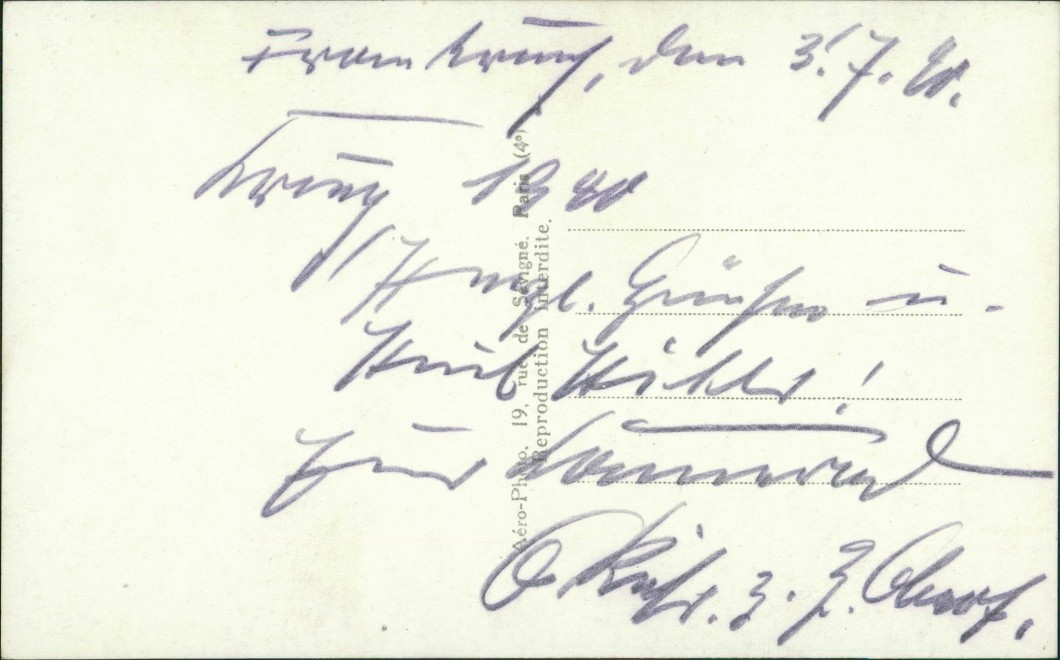 Frankreich, den 3.7.40.
Krieg 1940
Herzl. Grüßen u.
Heil Hitler!
Euer Kamerad
z. Z.
Aéro-Photo, 19, rue de Sévigné. Paris (4e)
Reproduction interdite.